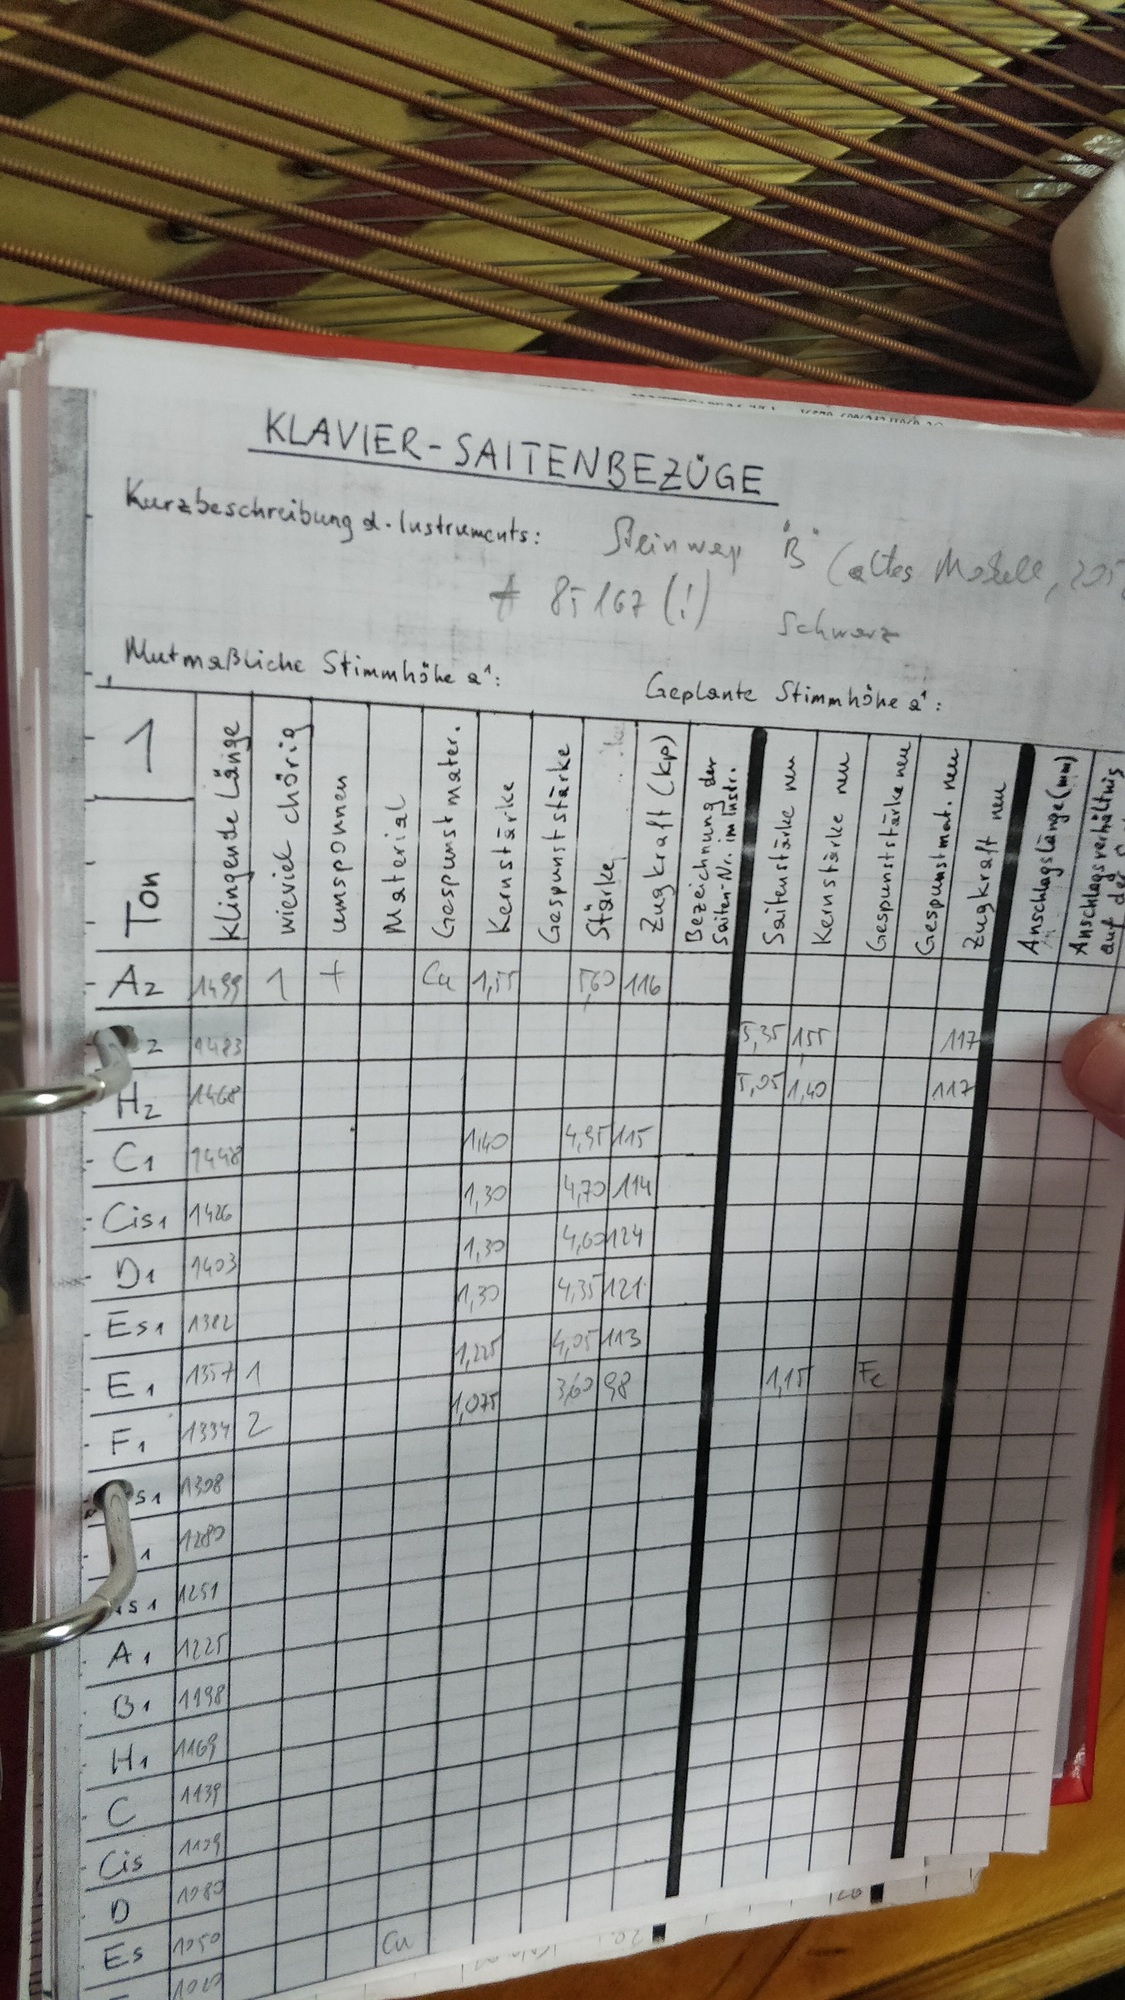 KLAVIER-SAITENBEZÜGE
Kurzbeschreibung d. Instruments: Steinway "B" (altes Modell, 205
# 85167 (!) Schwarz
Mutmaßliche Stimmhöhe a¹: Geplante Stimmhöhe a¹:
1
Ton Klingende Länge wieviel chörig umsponnen Material Gespunstmater. Kernstärke Gespunststärke Stärke Zugkraft (kp) Bezeichnung der Saiten-Nr. im Instr. Saitenstärke neu Kernstärke neu Gespunststärke neu Gespunstmat. neu Zugkraft neu Anschlagslänge (mm) Anschlagsverhältnis auf der
A2 1499 1 + Cu 1,55 5,60 116
2 1483 5,35 1,55 117
H2 1468 5,05 1,40 117
C1 1448 1,40 4,95 115
Cis1 1426 1,30 4,70 114
D1 1403 1,30 4,60 124
Es1 1382 1,30 4,35 121
E1 1357 1 1,225 4,05 113
F1 1334 2 1,075 3,60 98 1,15 Fe
s1 1308
1 1280
is1 1251
A1 1225
B1 1198
H1 1169
C 1139
Cis 1109
D 1080
Es 1050 Cu
1020